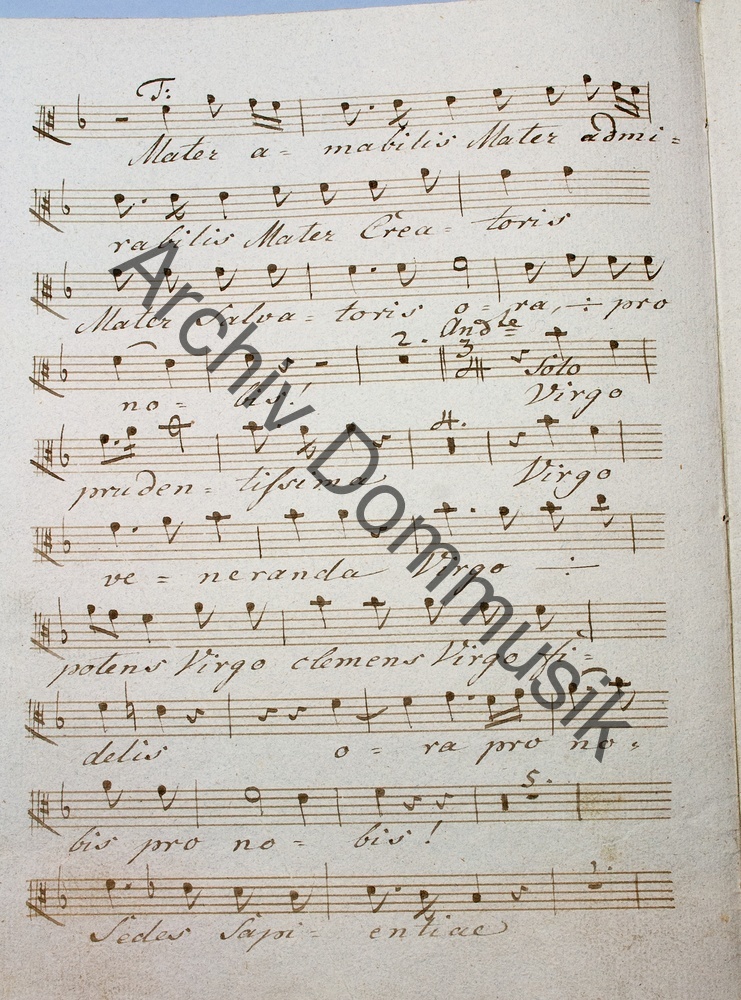 T:
Mater a- mabilis Mater admi=
rabilis Mater Crea- toris
Mater Salva- toris o- ra, ÷ pro
2. And:te
3
4
Solo
no= bis! Virgo
4.
pruden= tissima Virgo
ve= neranda Virgo ÷
potens Virgo clemens Virgo fi=
delis o= ra pro no=
5.
bis pro no= bis!
1.
Sedes Sapi- entiae
Archiv Dommusik